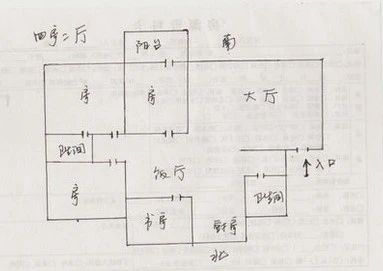 四房二厅
阳台
南
房
房
大厅
卫生间
入口
饭厅
房
卫生间
书房
厨房
北